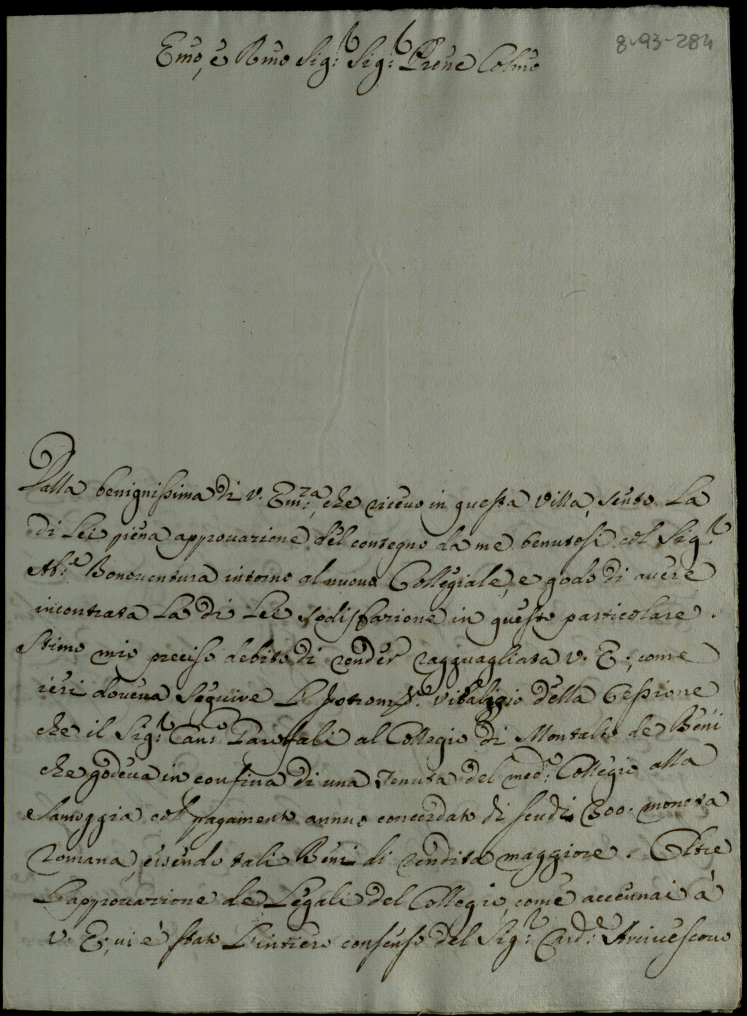 8-93-284
Emo, e Rmo Sig:r Sig:r Prone Colmo
Dalla benignissima di V. Em:za, che ricevo in questa Villa, sento La
di Lei piena approvazione del contegno da me tenutosi col Sig:r
Ab:e Bonaventura intorno al nuovo Collegiale, e godo di avere
incontrata La di Lei sodisfazione in questo particolare.
Stimo mio preciso debito di render ragguagliata V. E:, come
ieri doveva seguire L' Vitalizio della Cessione
che il Sig:r Can:o al Collegio di Montalto de Beni
che godeva in confina di una Tenuta del med:o Collegio alla
Samoggia col pagamento annuo concordato di scudi 300. moneta
Romana, essendo tali Beni di rendita maggiore. Oltre
L'approvazione de Legali del Collegio come accennai à
V. E:, vi è stato L'intiero consenso del Sig:r Card:e Arcivescovo